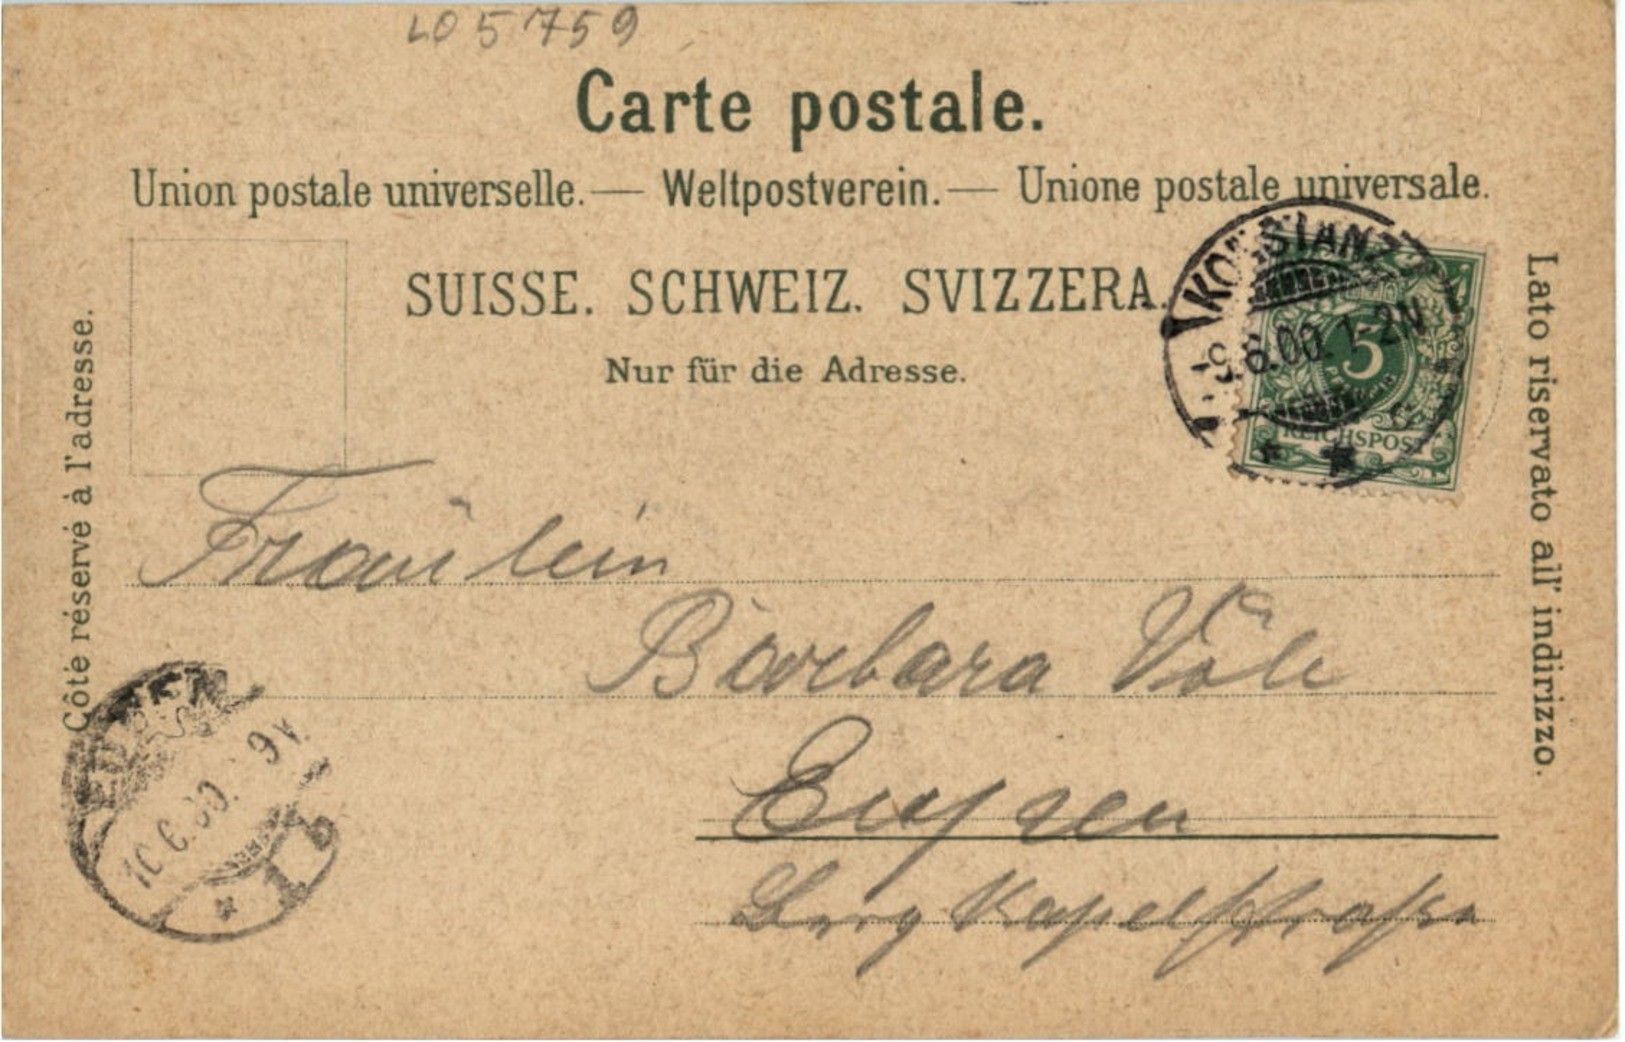 LO 5759
Carte postale.
Union postale universelle. — Weltpostverein. — Unione postale universale.
SUISSE. SCHWEIZ. SVIZZERA.
Nur für die Adresse.
Côté réservé à l'adresse.
Lato riservato all' indirizzo.
KONSTANZ
9.6.00. 1-2N
5
REICHSPOST
Fräulein
Barbara
Eupen
EUPEN
10.6.00. 9V.